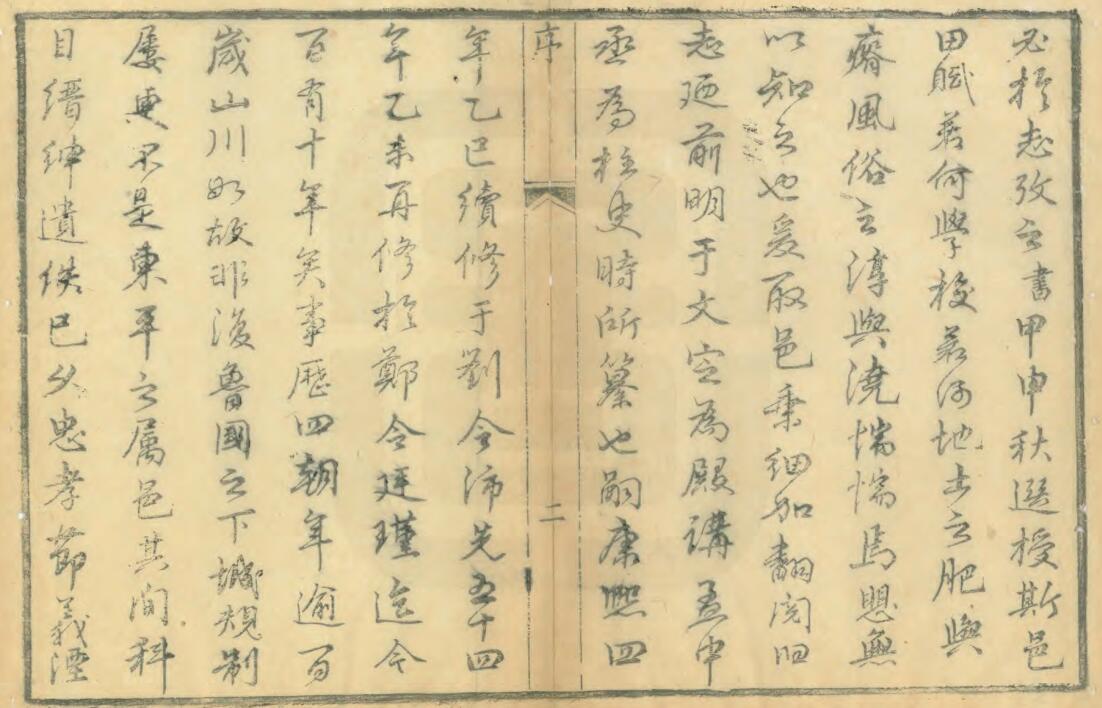 必於志攷之書甲申秋選授斯邑
田賦若何學校若何地土之肥與
瘠風俗之淳與澆惴惴焉思無
以知之也爰取邑乘細加翻閱旧
志廼前明于文定為殿講孟中
丞為柱史時所纂也嗣康熙四
序
二
年乙巳續修于劉令沛先五十四
年乙未再修於鄭令廷瑾迄今
百有十年矣事歷四朝年逾百
歲山川如故非復魯國之下城規制
屢更不是東平之屬邑其間科
目縉紳遺佚已久忠孝節義湮